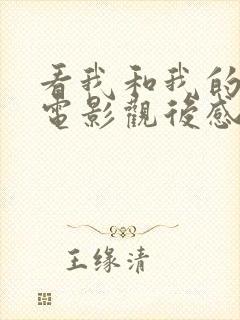 看我和我的
電影觀後感
王缘清